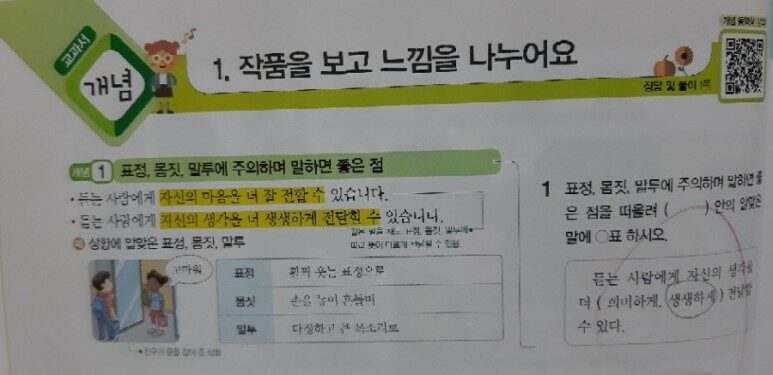 교과서
개념
1. 작품을 보고 느낌을 나누어요
개념 동영상 강의
정답 및 풀이 1쪽
개념 1 표정, 몸짓, 말투에 주의하며 말하면 좋은 점
• 듣는 사람에게 자신의 마음을 더 잘 전할 수 있습니다.
• 듣는 사람에게 자신의 생각을 더 생생하게 전달할 수 있습니다.
같은 말을 해도 표정, 몸짓, 말투에
따라 뜻이 다르게 전달될 수 있음
예 상황에 알맞은 표정, 몸짓, 말투
고마워.
표정 활짝 웃는 표정으로
몸짓 손을 높이 흔들며
말투 다정하고 큰 목소리로
친구가 문을 잡아 준 상황
1 표정, 몸짓, 말투에 주의하며 말하면 좋
은 점을 떠올려 ( ) 안의 알맞은
말에 ○표 하시오.
듣는 사람에게 자신의 생각을
더 ( 희미하게, 생생하게 ) 전달할
수 있다.